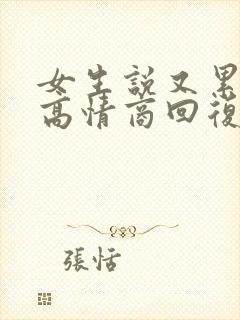 女生說又累
高情商回復
張恬